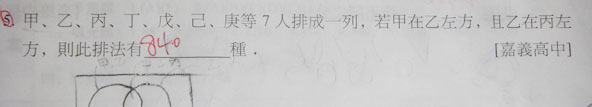 ⑤ 甲、乙、丙、丁、戊、己、庚等7人排成一列,若甲在乙左方,且乙在丙左
方,則此排法有 840 種. [嘉義高中]
甲 丙